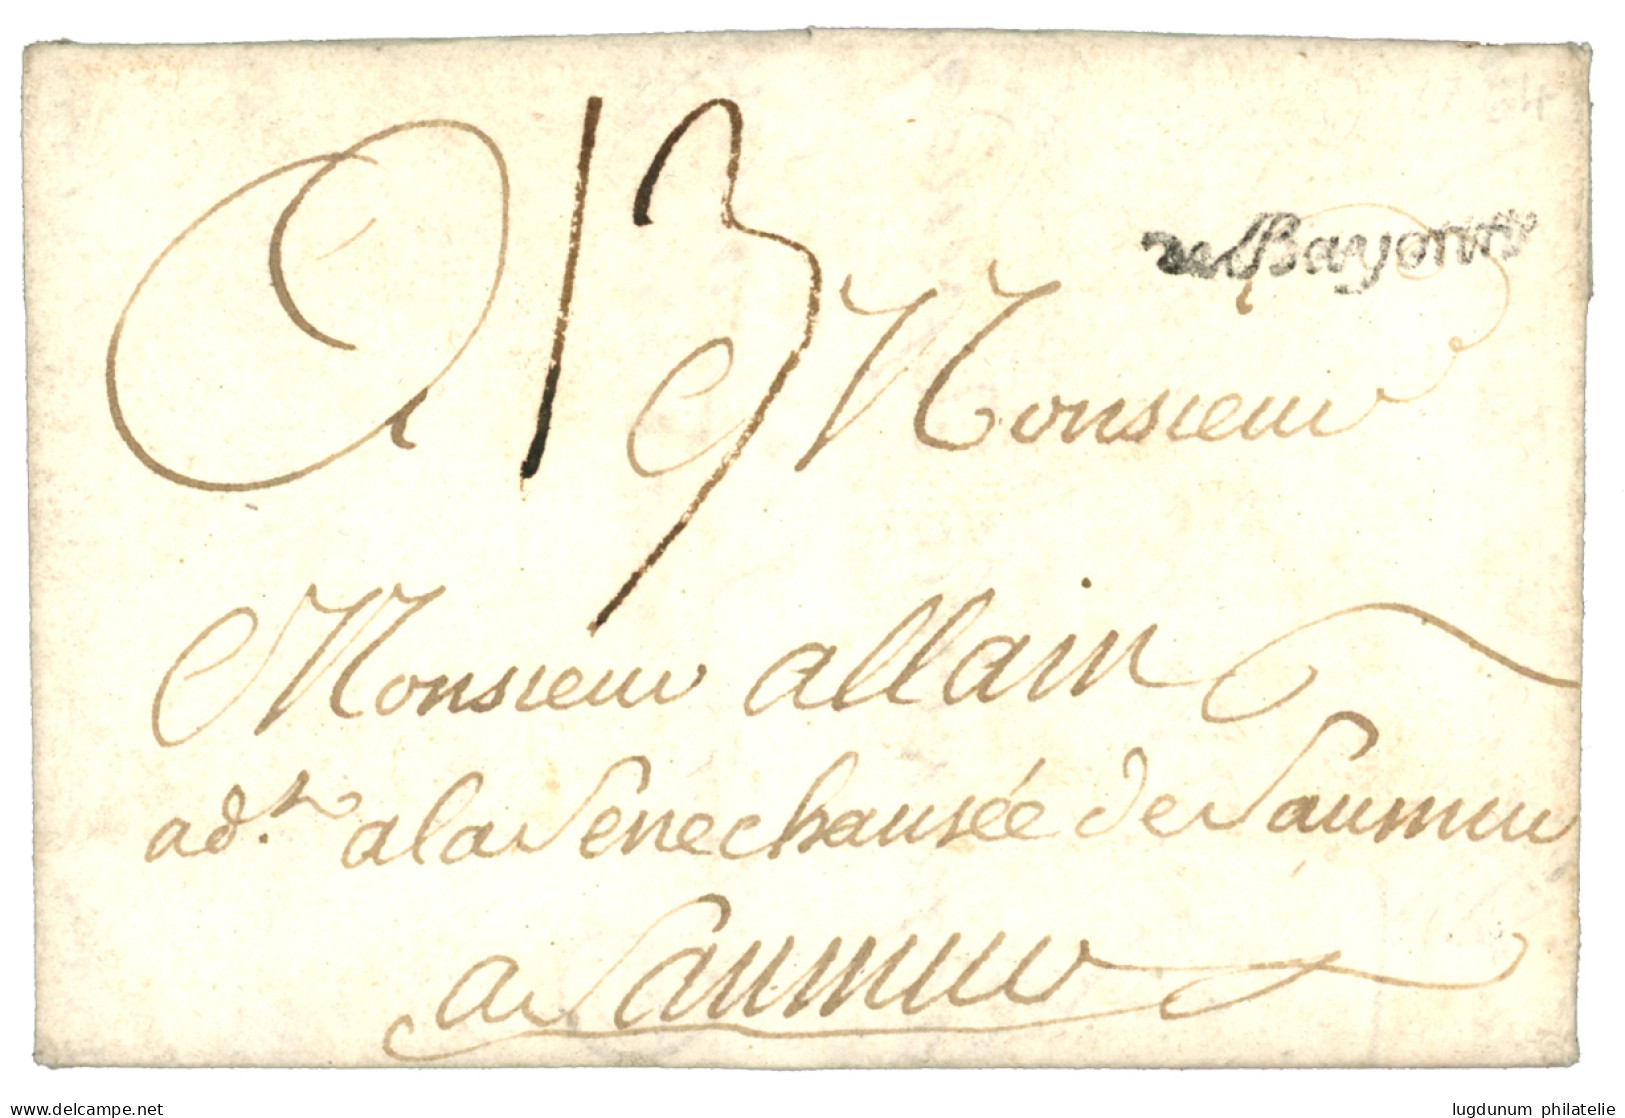 A 13
de Bayonne
Monsieur
Monsieur allain
ad.t a la Senechausée de Saumur
a Saumur
delcampe.net
lugdunum philatelie